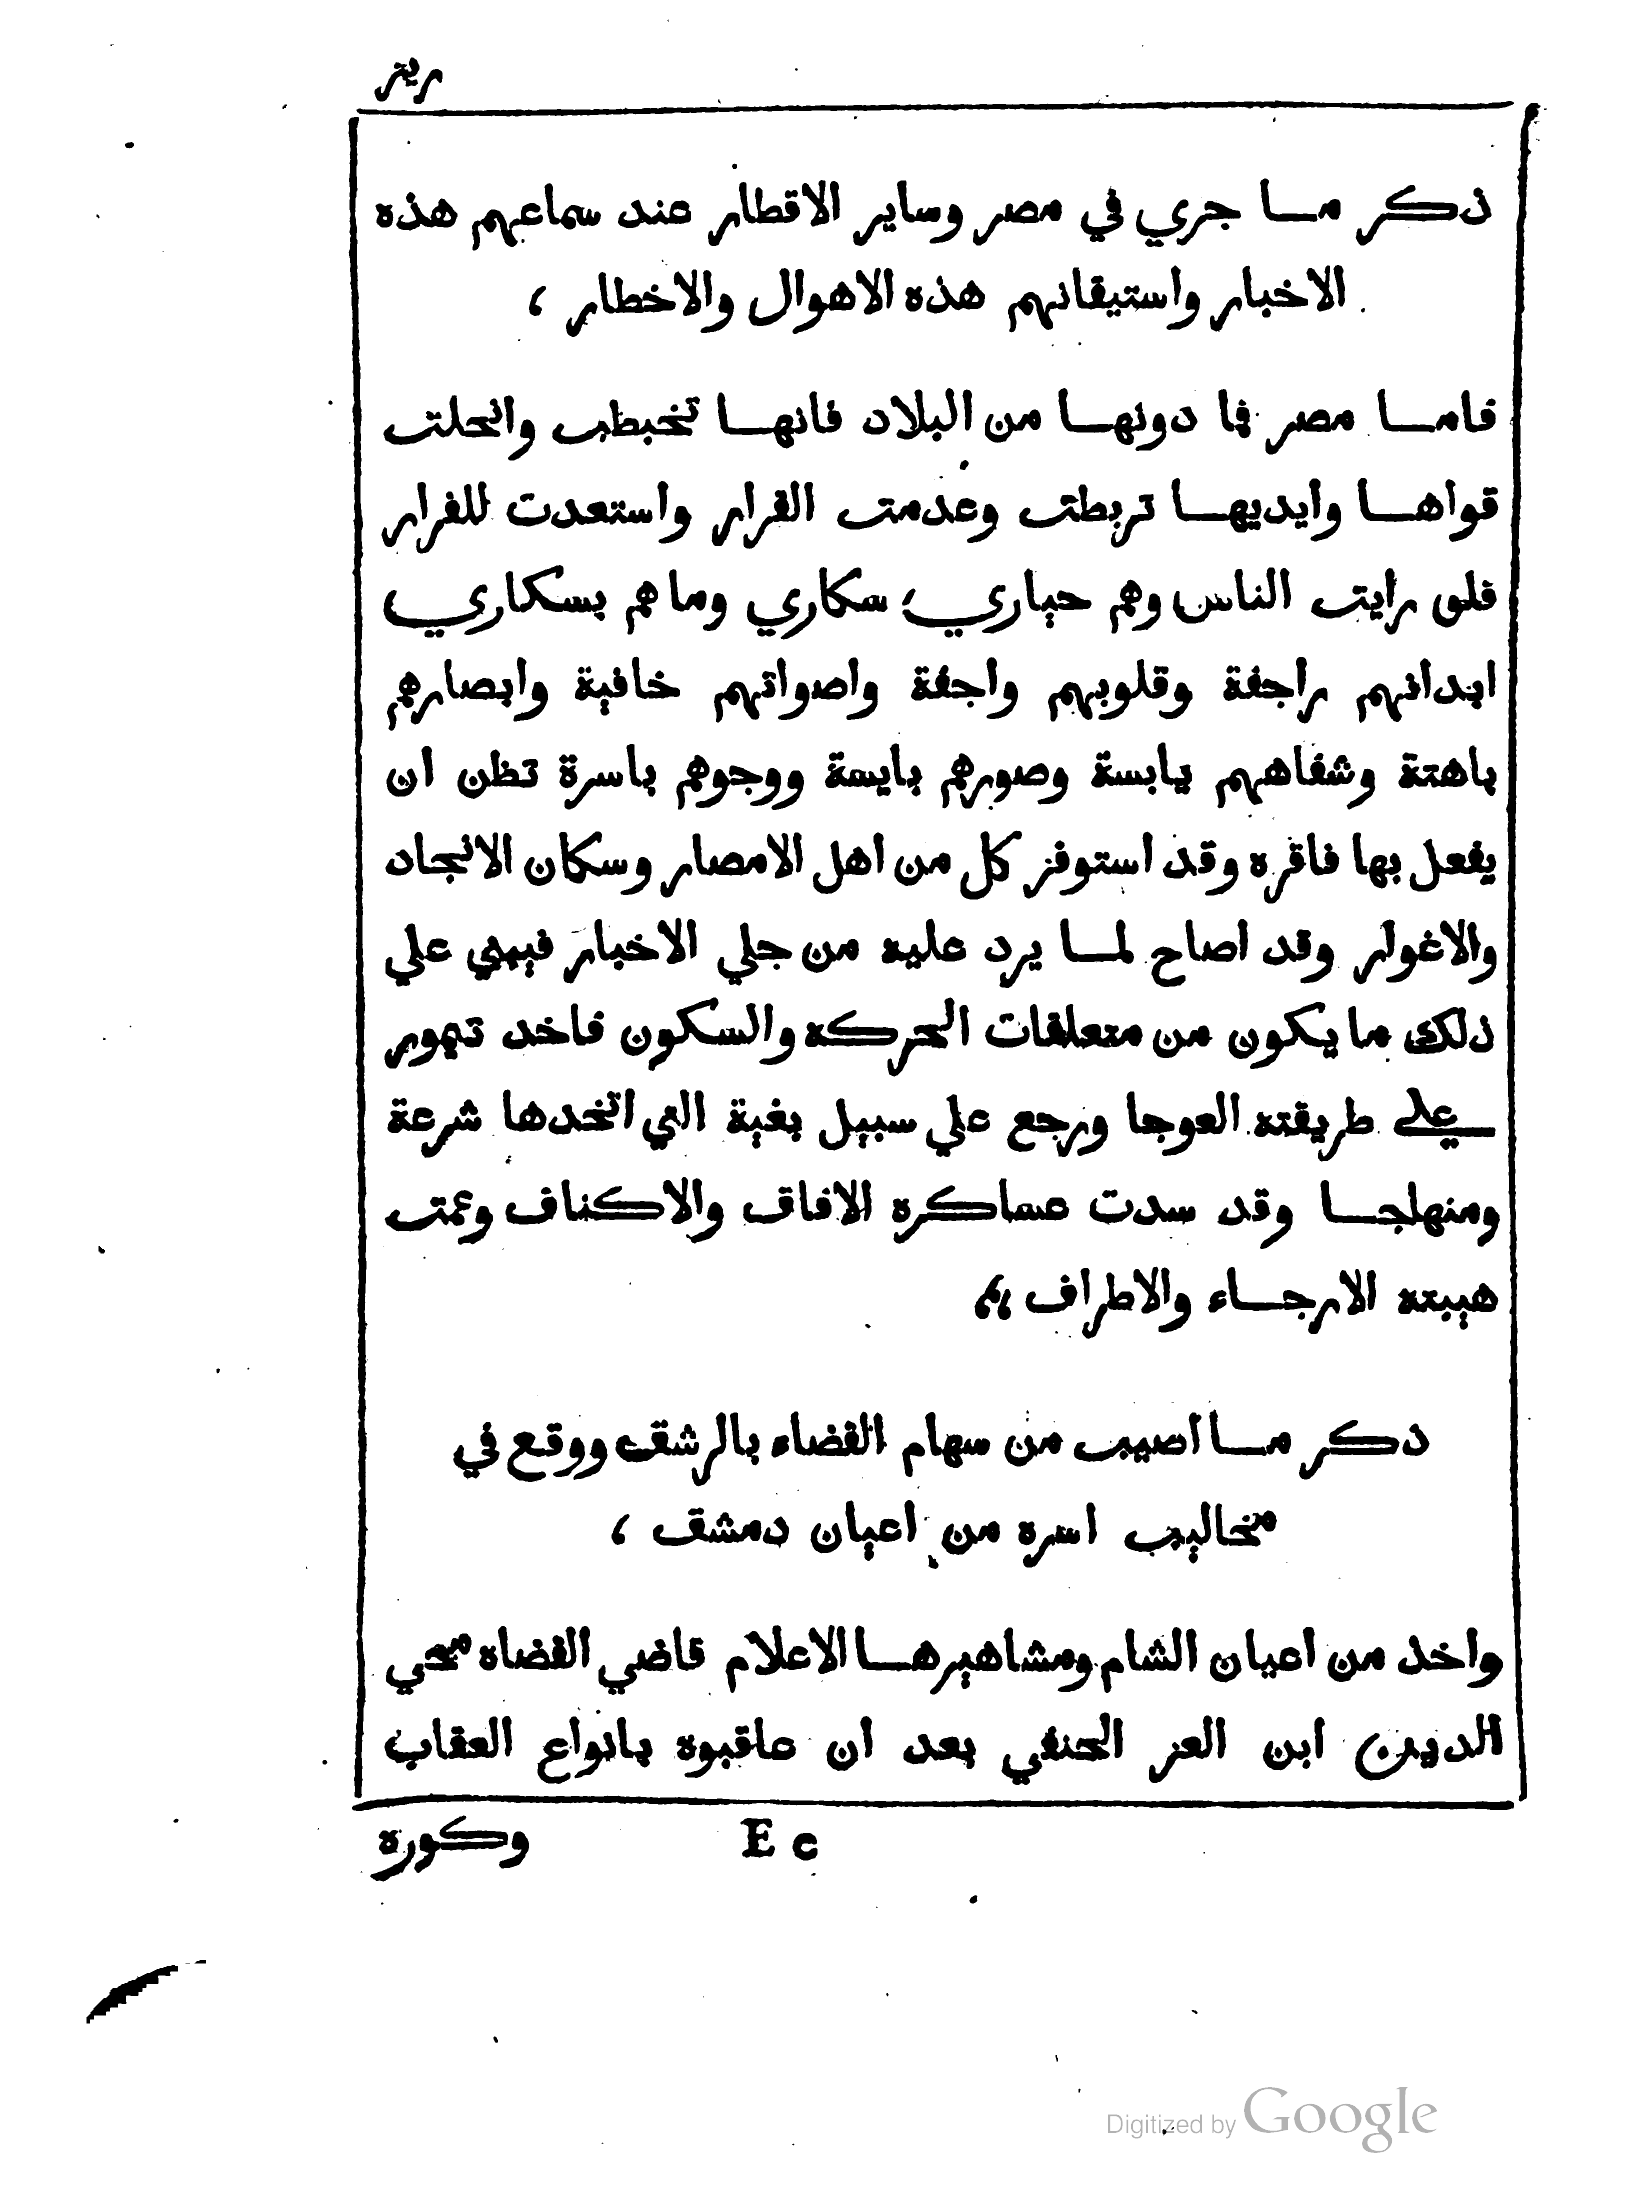 ذكر مـــا جري في مصر وساير الاقطار عند سماعهم هذه
الاخبار واستيقانهم هذه الاهوال والاخطار ،
فامـــا مصر فما دونهـــا من البلاد فانهـــا تخبطت وانحلت
قواهـــا وايديهـــا تربطت وعدمت القرار واستعدت للفرار
فلو رايت الناس وهم حياري، سكاري وما هم بسكاري
ابدانهم راجفة وقلوبهم واجفة واصواتهم خافية وابصارهم
باهتة وشفاههم يابسة وصورهم بايسة ووجوهم باسرة تظن ان
يفعل بها فاقره وقد استوفز كل من اهل الامصار وسكان الانجاد
والاغوار وقد اصاح لمـــا يرد عليه من جلي الاخبار فيهني علي
ذلك ما يكون من متعلقات الحركه والسكون فاخد تيمور
علي طريقته العوجا ورجع علي سبيل بغية التي اتخدها شرعة
ومنهاجـــا وقد سدت عساكره الافاق والاكناف وعمت
هيبته الارجـــاء والاطراف ،،
ذكر مـــا اصيب من سهام القضاء بالرشق ووقع في
مخاليب اسره من اعيان دمشق ،
واخذ من اعيان الشام ومشاهيرهـــا الاعلام قاضي القضاه محي
الدين ابن العز الحنفي بعد ان عاقبوه بانواع العقاب
وكوره
E e
Digitized by Google